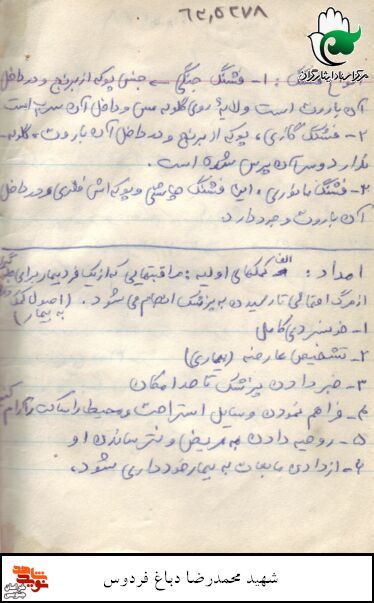 ۶۲,۵۲۷۸
مرکز اسناد ایثارگران
انواع فشنگ : ۱- فشنگ جنگی ← جنس پوکه از برنج و در داخل
آن باروت است و لایهٔ روی گلوله مس و داخل آن سرب است
۲- فشنگ گازی، پوکه از برنج و در داخل آن باروت، گلوله
ندارد و سر آن پرس شده است.
۳- فشنگ مانوری، این فشنگ چاشنی و پوکه اش فلزی و در داخل
آن باروت وجود دارد
امداد : الف کمکهای اولیه : مراقبتهایی که از یک فرد بیمار برای جلوگیری
از مرگ احتمالی تا رسیدن به پزشک انجام می شود. (اصول کمک
به بیمار)
۱- خونسردی کامل
۲- تشخیص عارضه (بیماری)
۳- خبر دادن پزشک تا حد امکان
۴- فراهم نمودن وسایل استراحت و محیط را ساکت و آرام کنیم
۵- روحیه دادن به مریض و نترساندن او
۶- از دادن مایعات به بیمار خودداری شود.
شهید محمدرضا دباغ فردوس
نوید شاهد
خراسان جنوبی